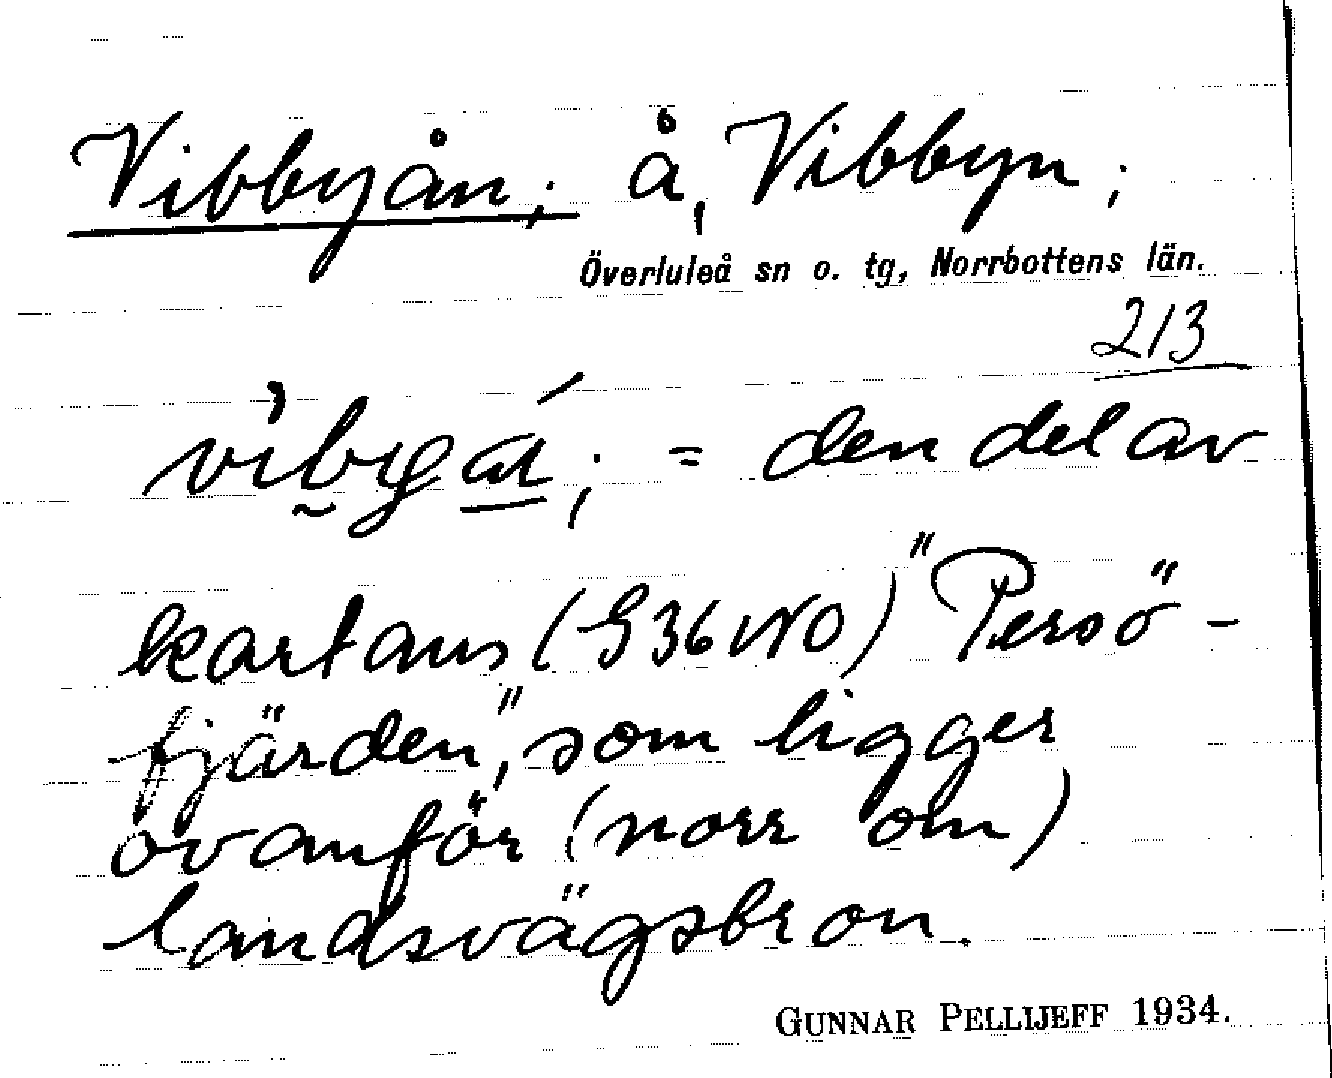 Vibbyån; å, Vibbyn;
Överluleå sn o. tg, Norrbottens län.
213
= den del av
kartans (S36NO) "Persö-
fjärden", som ligger
ovanför (norr om)
landsvägsbron.
GUNNAR PELLIJEFF 1934.